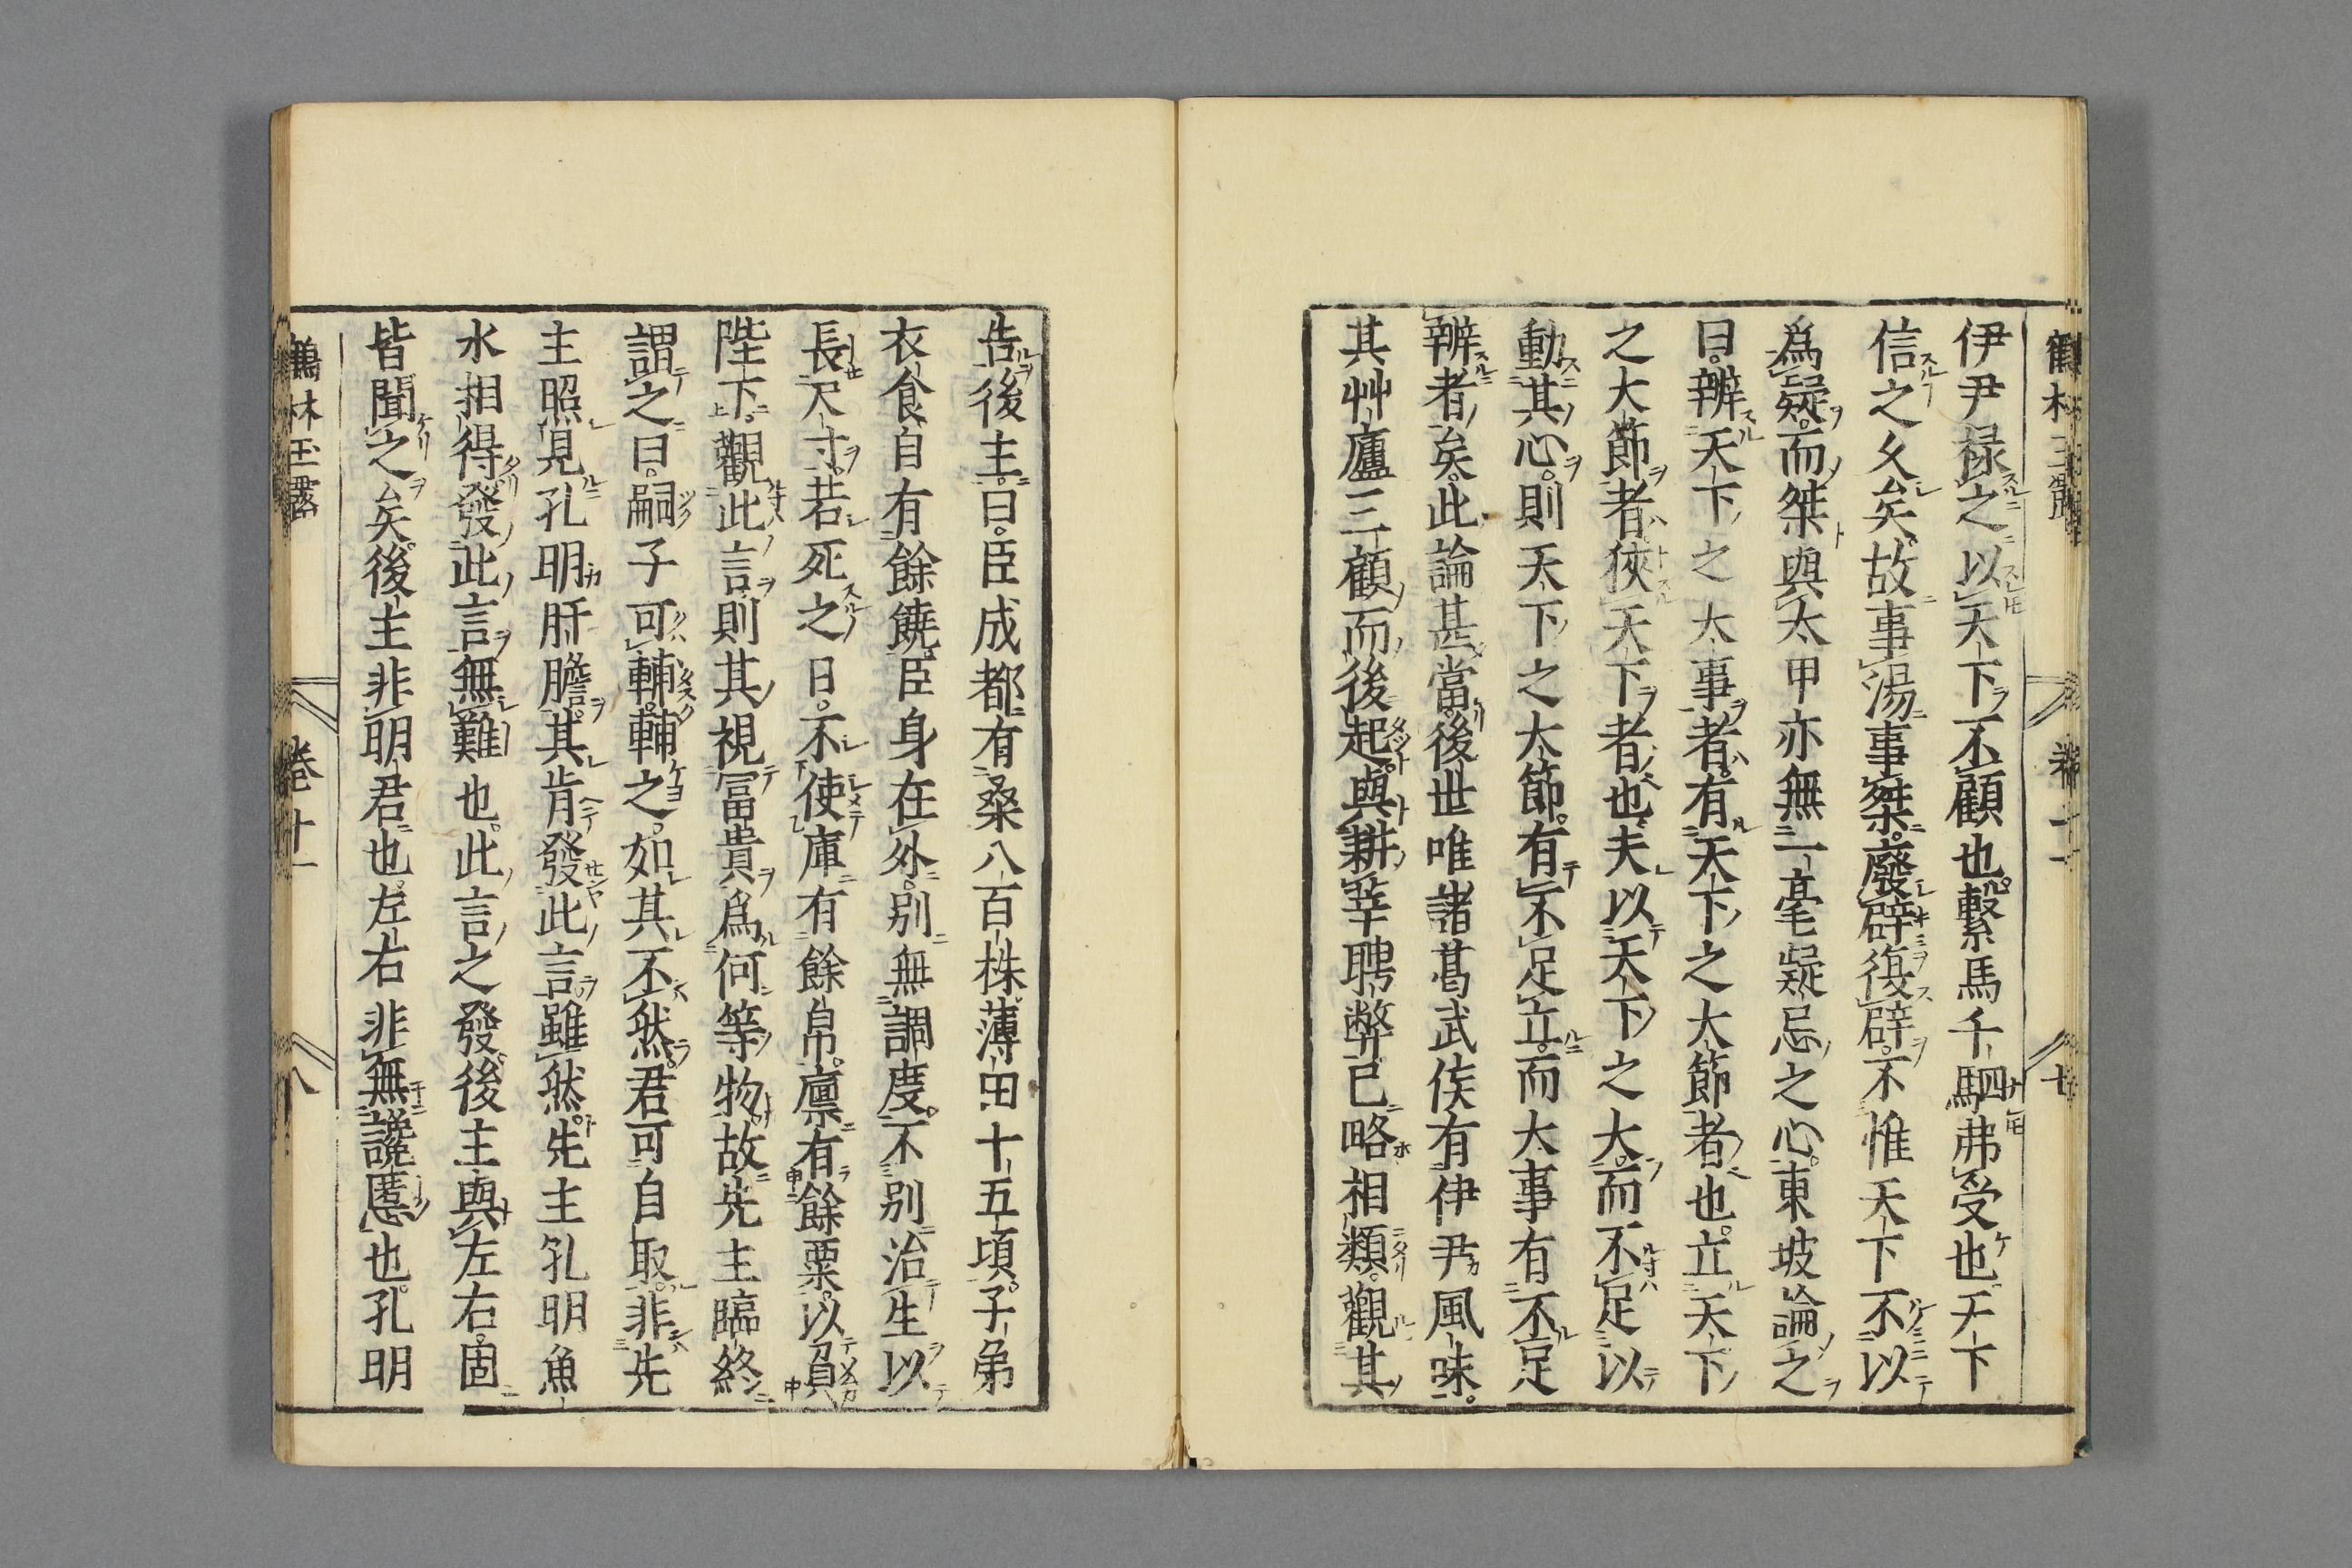 伊尹禄之以天下不顧也繫馬千駟弗受也天下
信之久矣故事湯事桀廢辟復辟不惟天下不以
爲疑而桀與太甲亦無一毫疑忌之心東坡論之
曰辨天下之大事者有天下之大節者也立天下
之大節者狹天下者也夫以天下之大而不足以
動其心則天下之大節有不足立而大事有不足
辨者矣此論甚當後世唯諸葛武侯有伊尹風味
其艸廬三顧而後起與耕莘聘幣已略相類觀其
告後主曰臣成都有桑八百株薄田十五頃子弟
衣食自有餘饒臣身在外別無調度不別治生以
長尺寸若死之日不使庫有餘帛廩有餘粟以負
陛下觀此言則其視冨貴爲何等物故先主臨終
謂之曰嗣子可輔輔之如其不然君可自取非先
主照見孔明肝膽其肯發此言雖然先主孔明魚
水相得發此言無難也此言之發後主與左右固
皆聞之矣後主非明君也左右非無讒慝也孔明
鶴林玉露
卷十一
八